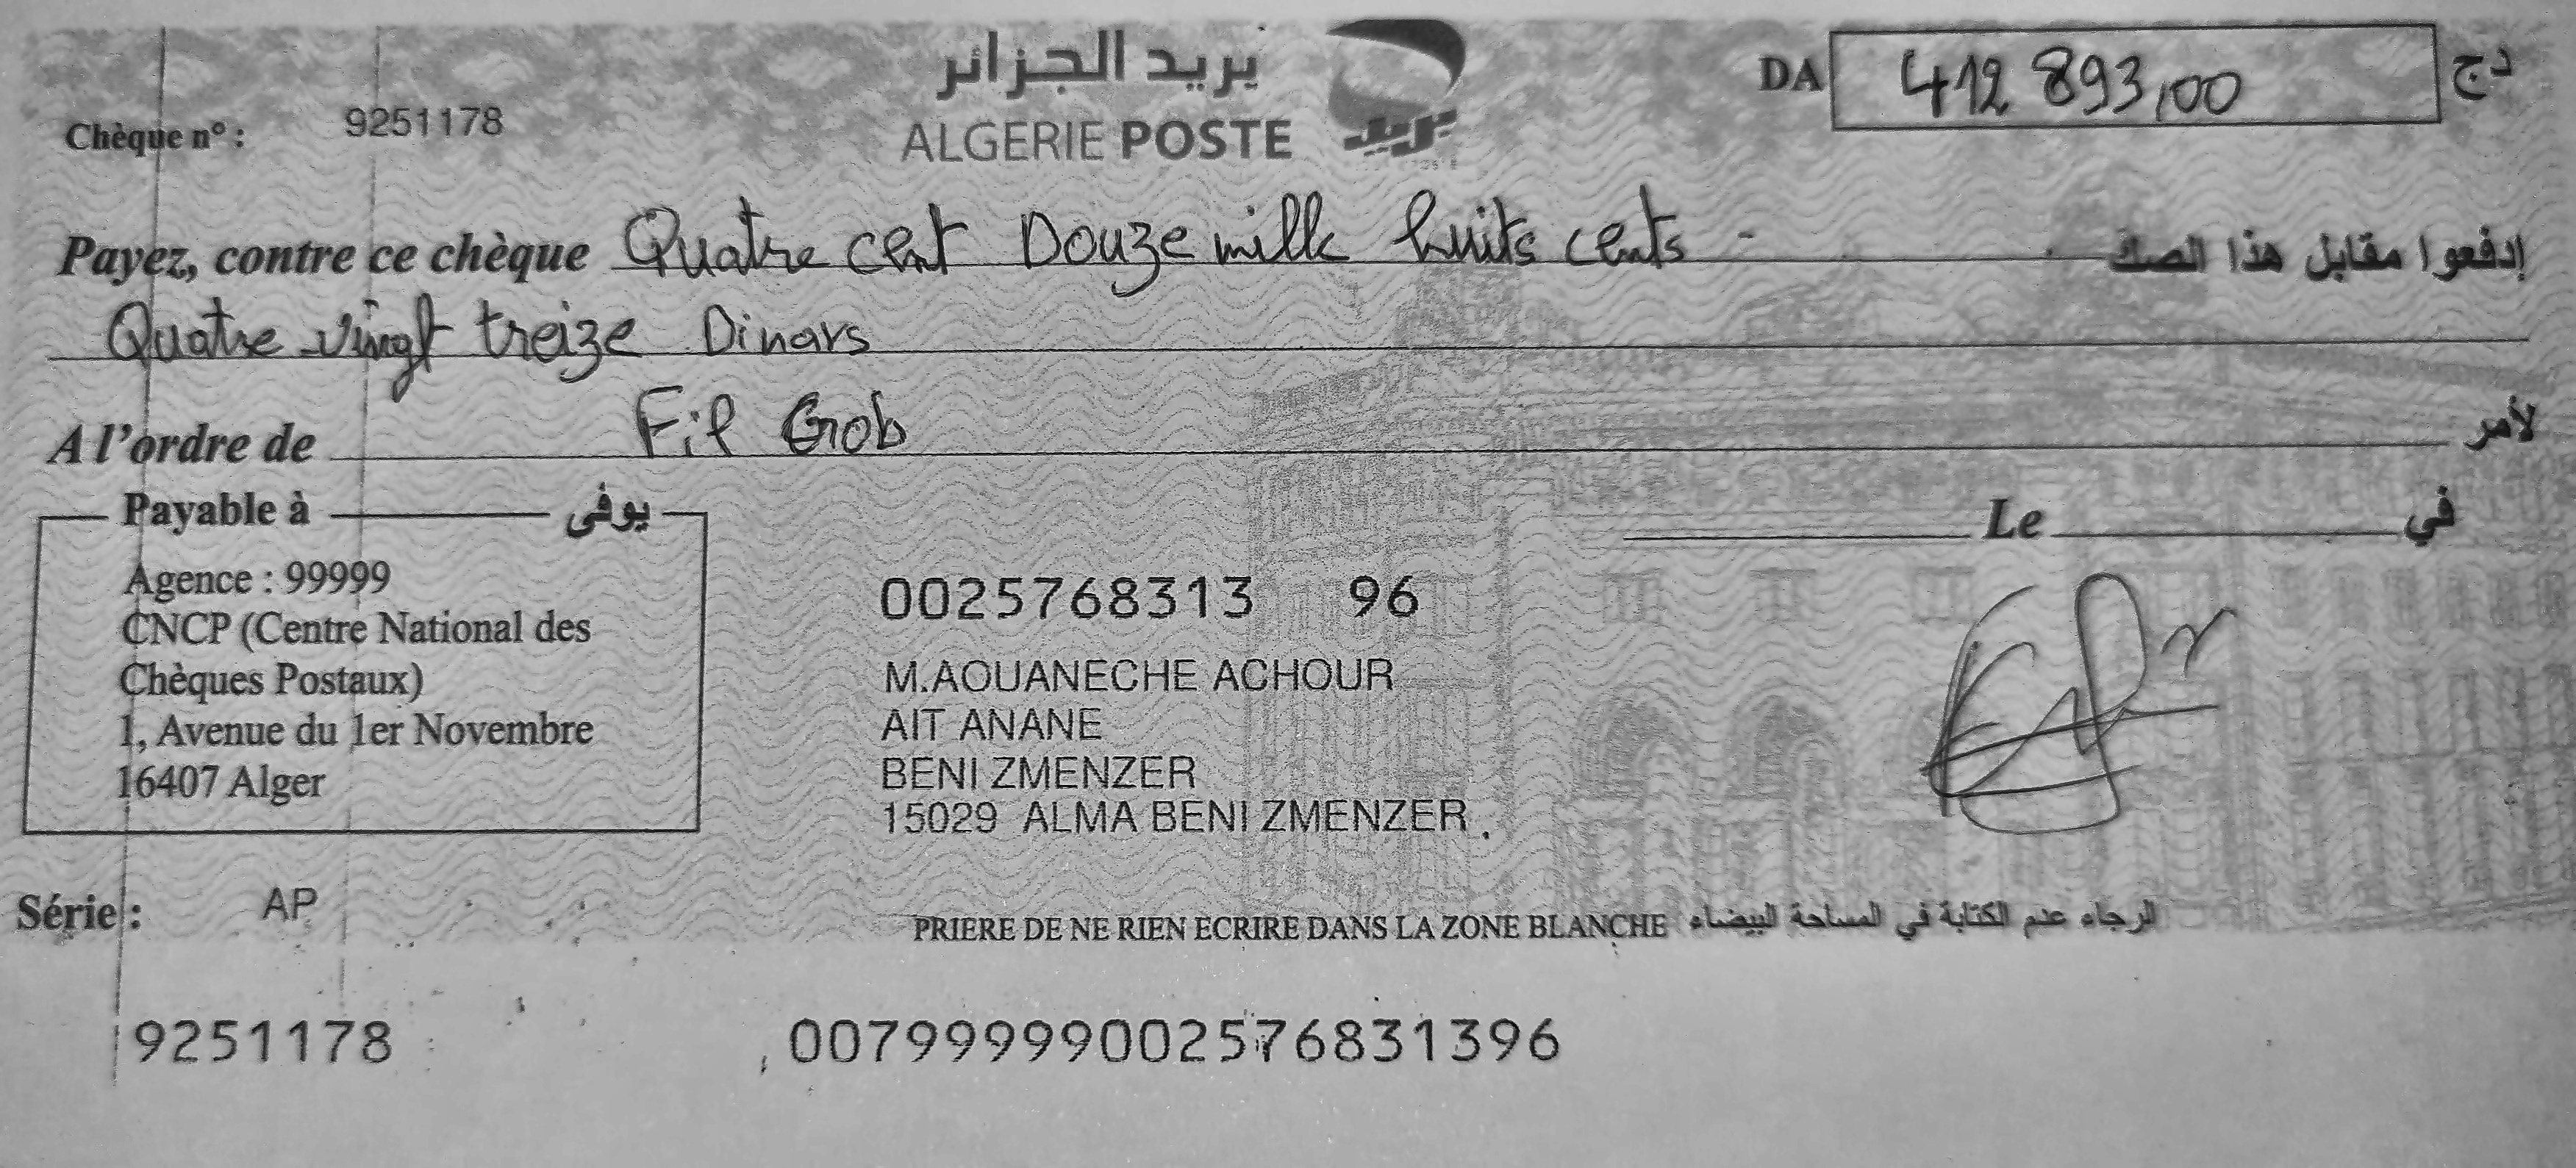 بريد الجزائر
ALGERIE POSTE
بريد
DA 412 893,00 دج
Chèque n° : 9251178
Payez, contre ce chèque Quatre cent Douze mille huits cents - إدفعوا مقابل هذا الصك
Quatre vingt treize Dinars
A l'ordre de Fil Grob لأمر
Payable à يوفى
Le في
Agence : 99999
CNCP (Centre National des
Chèques Postaux)
1, Avenue du 1er Novembre
16407 Alger
0025768313 96
M.AOUANECHE ACHOUR
AIT ANANE
BENI ZMENZER
15029 ALMA BENI ZMENZER
Série : AP
PRIERE DE NE RIEN ECRIRE DANS LA ZONE BLANCHE الرجاء عدم الكتابة في المساحة البيضاء
9251178 00799999002576831396